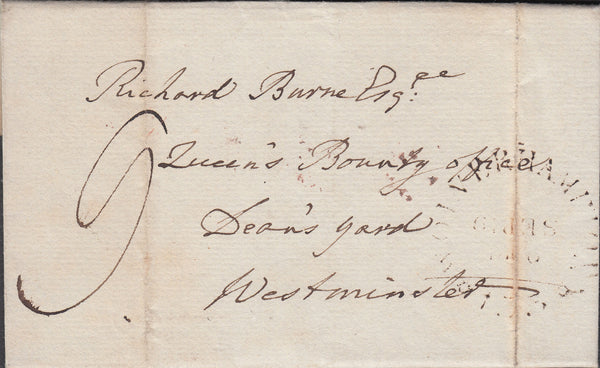 Richard Burne Esq.re
9
Queen's Bounty office
Dean's yard
Westminster.